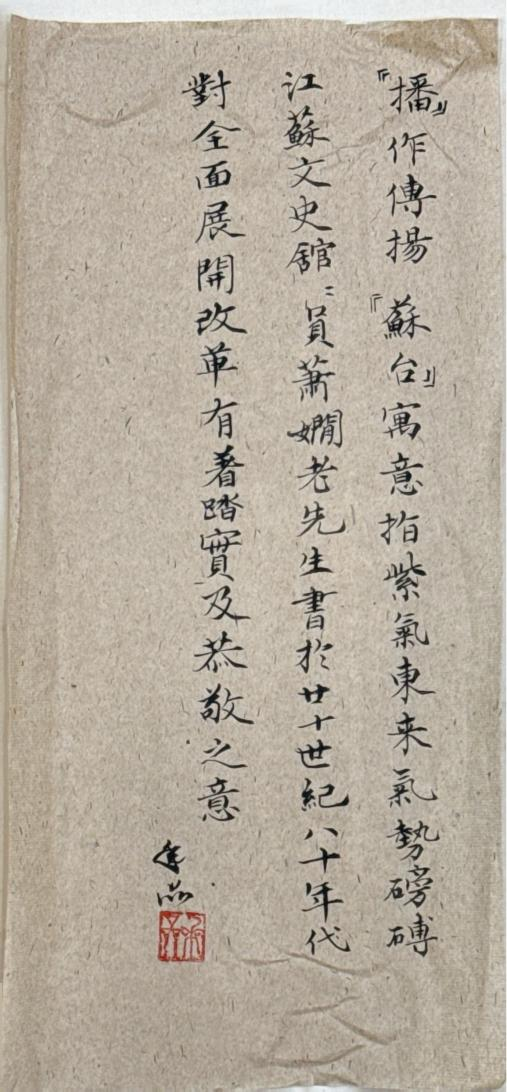 『播』作傳揚『蘇台』寓意指紫氣東来氣勢磅礡
江蘇文史舘〻員蕭嫻老先生書於廿十世紀八十年代
對全面展開改革有著踏實及恭敬之意